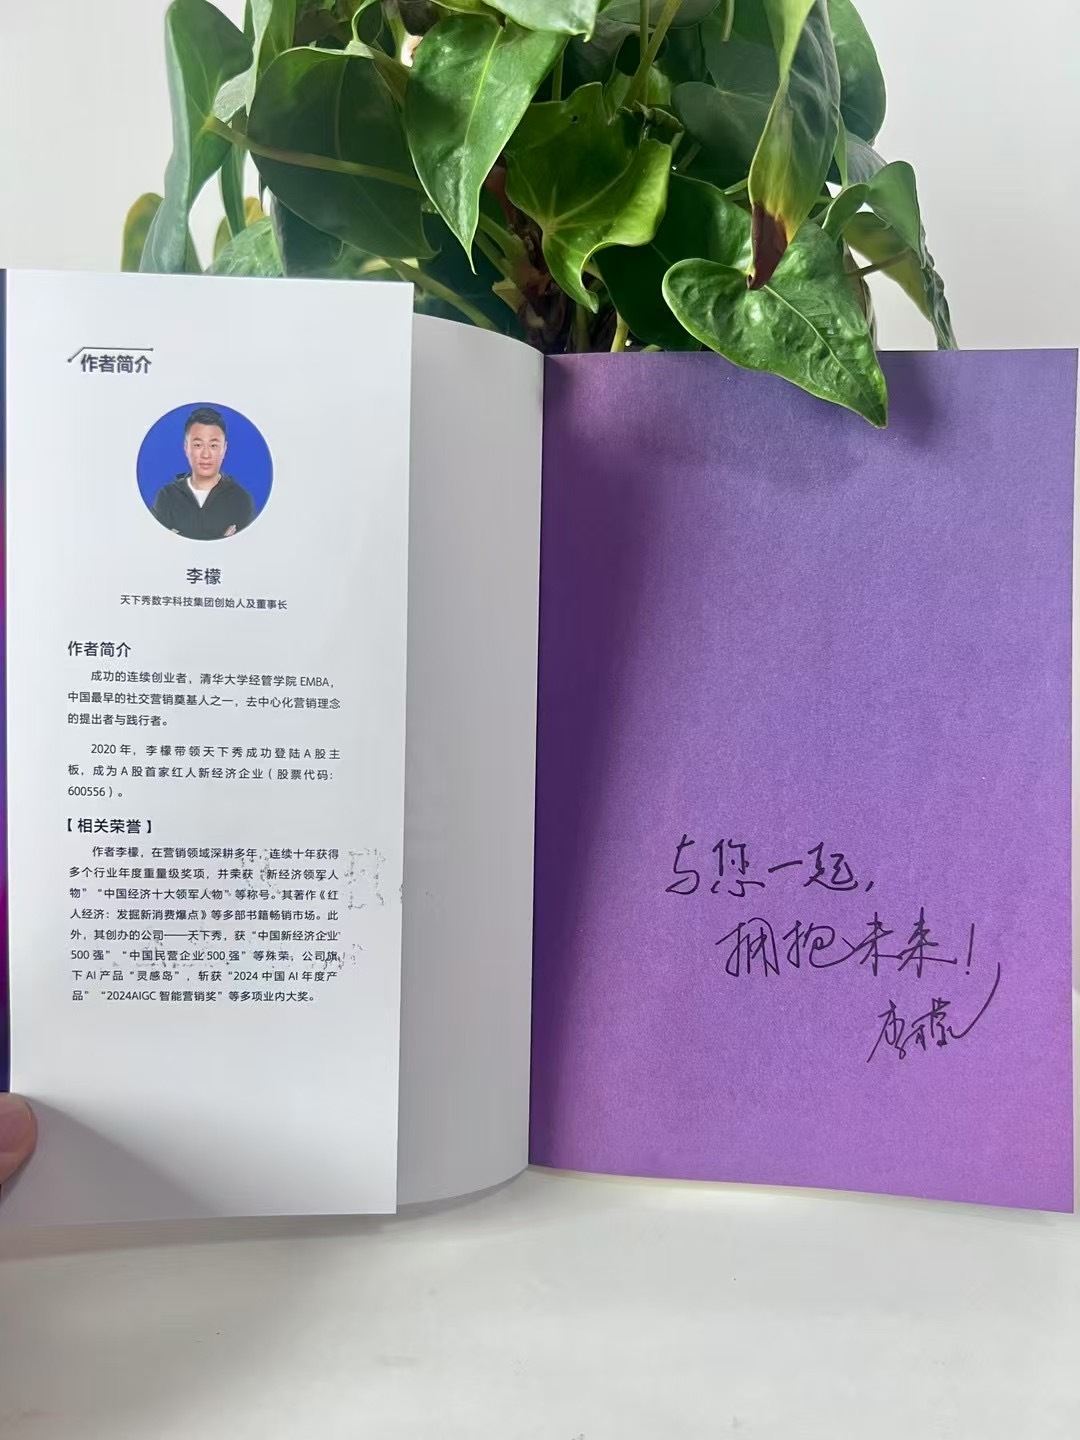 作者简介
李檬
天下秀数字科技集团创始人及董事长
作者简介
成功的连续创业者，清华大学经管学院 EMBA，
中国最早的社交营销奠基人之一，去中心化营销理念
的提出者与践行者。
2020 年，李檬带领天下秀成功登陆 A 股主
板，成为 A 股首家红人新经济企业（股票代码：
600556）。
【相关荣誉】
作者李檬，在营销领域深耕多年，连续十年获得
多个行业年度重量级奖项，并荣获“新经济领军人
物”“中国经济十大领军人物”等称号。其著作《红
人经济：发掘新消费爆点》等多部书籍畅销市场。此
外，其创办的公司——天下秀，获“中国新经济企业
500 强”“中国民营企业 500 强”等殊荣，公司旗
下 AI 产品“灵感岛”，斩获“2024 中国 AI 年度产
品”“2024AIGC 智能营销奖”等多项业内大奖。
与您一起，
拥抱未来！
李檬